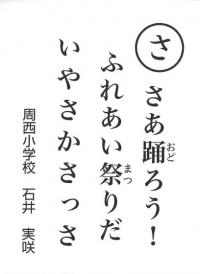 さ
さあ踊ろう！
ふれあい祭りだ
いやさかさっさ
周西小学校　石井　実咲